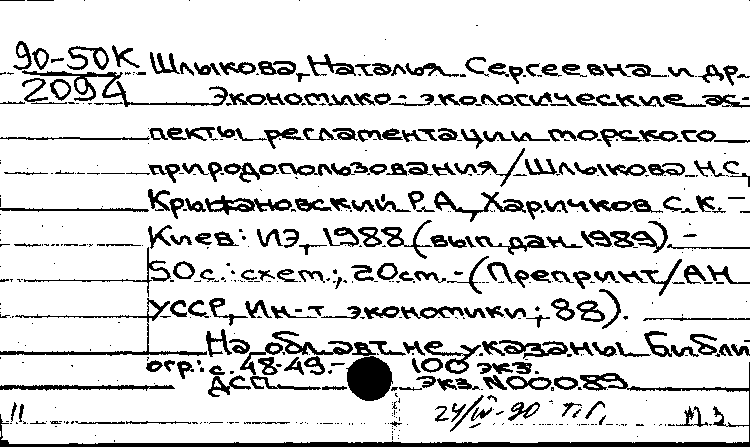 90-50К Шлыкова, Наталья Сергеевна и др.
2094 Экономико-экологические ас-
пекты регламентации морского
природопользования/Шлыкова Н.С.,
Крыжановский Р.А., Харичков С.К. -
Киев: ИЭ, 1988 (вып. дан. 1989). -
50с.: схем.; 20см. - (Препринт/АН
УССР, Ин-т экономики; 88).
На обл. авт. не указаны. Библи
огр.: с. 48-49. - 100 экз.
ДСП. Экз. N00089
11 24/IV-90 П.Г. М.З